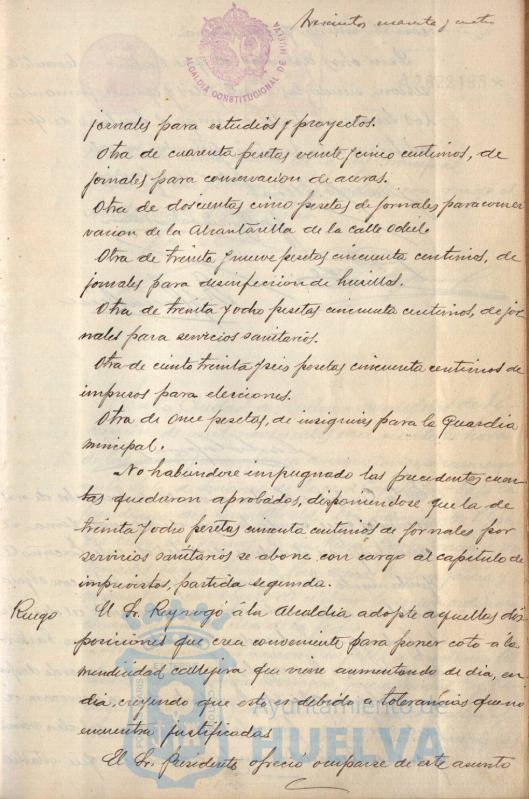 trescientos cuarenta y cuatro
ALCALDIA CONSTITUCIONAL DE HUELVA
jornales para estudios y proyectos.
Otra de cuarenta pesetas veinte y cinco centimos, de
jornales para conservacion de aceras.
Otra de doscientas cinco pesetas de jornales para conser
vacion de la Alcantarilla de la calle Odiel.
Otra de treinta y nueve pesetas cincuenta centimos, de
jornales para desinfección de husillos.
Otra de treinta y ocho pesetas cincuenta centimos, de jor
nales para servicios sanitarios.
Otra de ciento treinta y seis pesetas cincuenta centimos de
impresos para elecciones.
Otra de once pesetas, de insignias para la Guardia
municipal.
No habiéndose impugnado las precedentes cuen
tas quedaron aprobadas, disponiéndose que la de
treinta y ocho pesetas cincuenta centimos de jornales por
servicios sanitarios se abone con cargo al capitulo de
imprevistos, partida segunda.
Ruego El Sr. Rey rogó á la Alcaldia adopte aquellas dis
posiciones que crea conveniente para poner coto a la
mendicidad callejera que viene aumentando de dia, en
dia, creyendo que esto es debido a tolerancias que no
encuentra justificadas
El Sr. Presidente ofreció ocuparse de este asunto
Ayuntamiento de
HUELVA